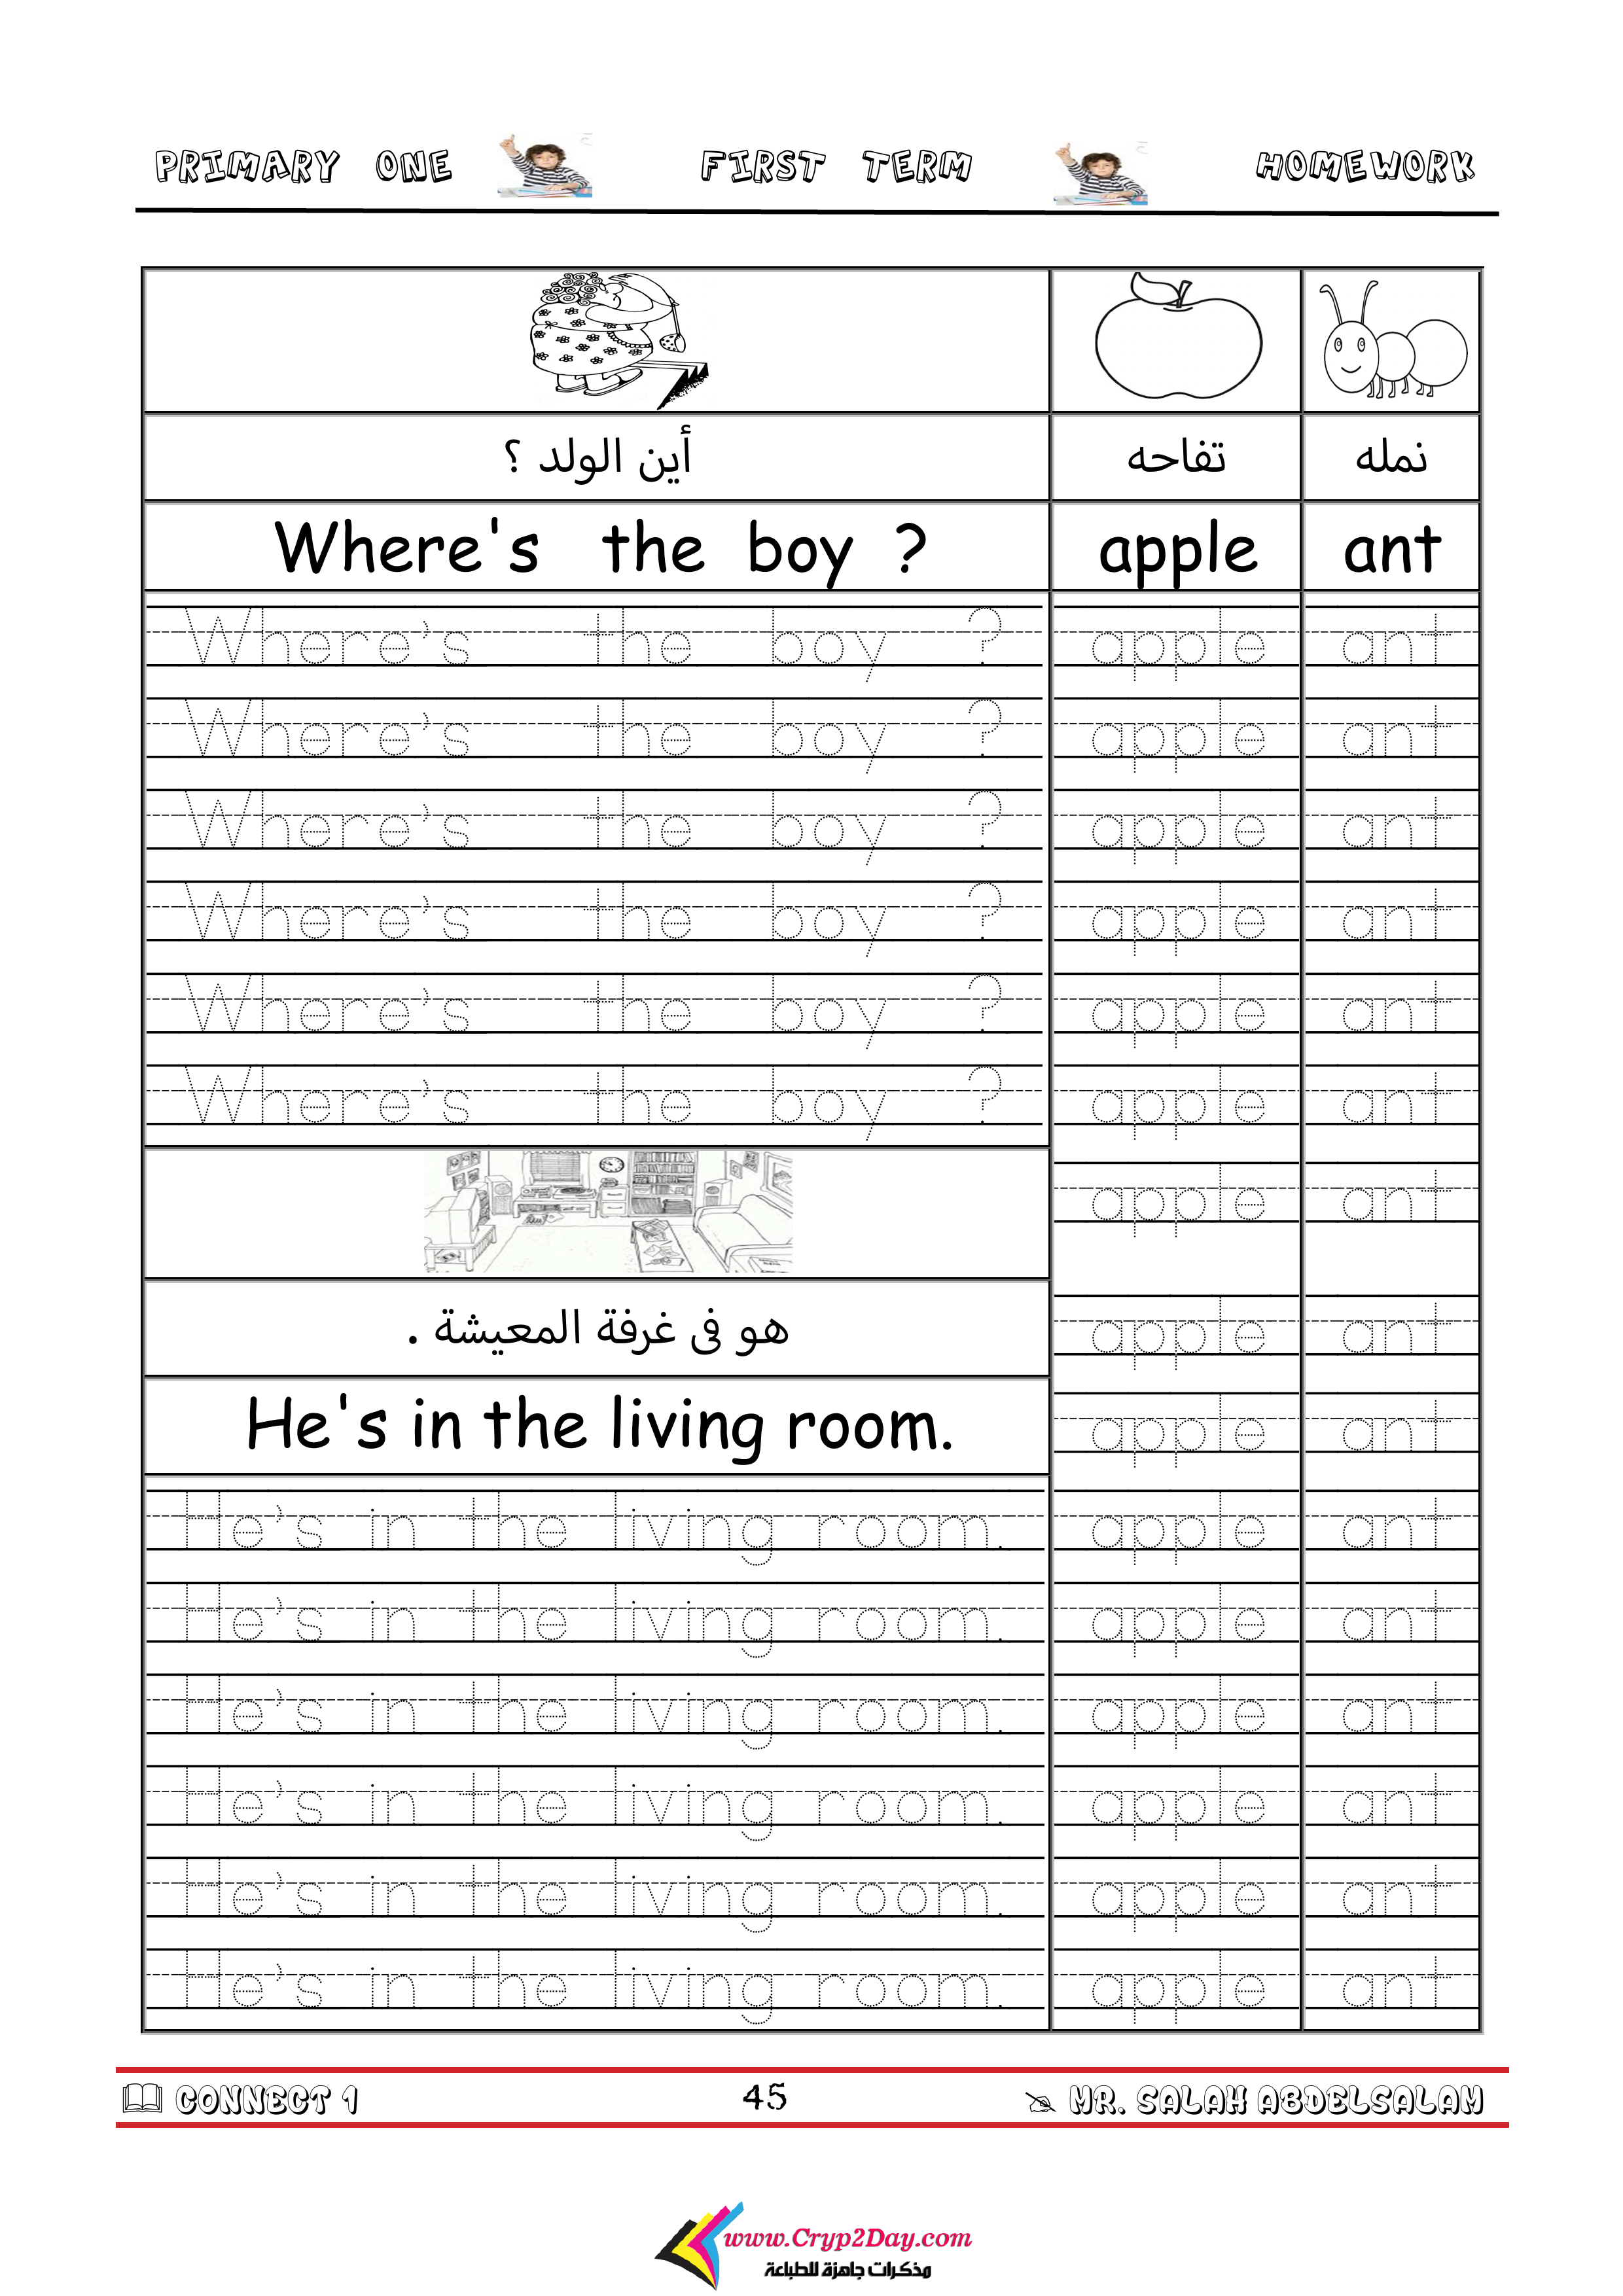 PRIMARY ONE FIRST TERM HOMEWORK
أين الولد ؟ تفاحه نمله
Where's the boy ? apple ant
Where's the boy ? apple ant
Where's the boy ? apple ant
Where's the boy ? apple ant
Where's the boy ? apple ant
Where's the boy ? apple ant
Where's the boy ? apple ant
apple ant
هو فى غرفة المعيشة . apple ant
He's in the living room. apple ant
He's in the living room. apple ant
He's in the living room. apple ant
He's in the living room. apple ant
He's in the living room. apple ant
He's in the living room. apple ant
He's in the living room. apple ant
CONNECT 1 45 MR. SALAH ABDELSALAM
www.Cryp2Day.com
مذكرات جاهزة للطباعة